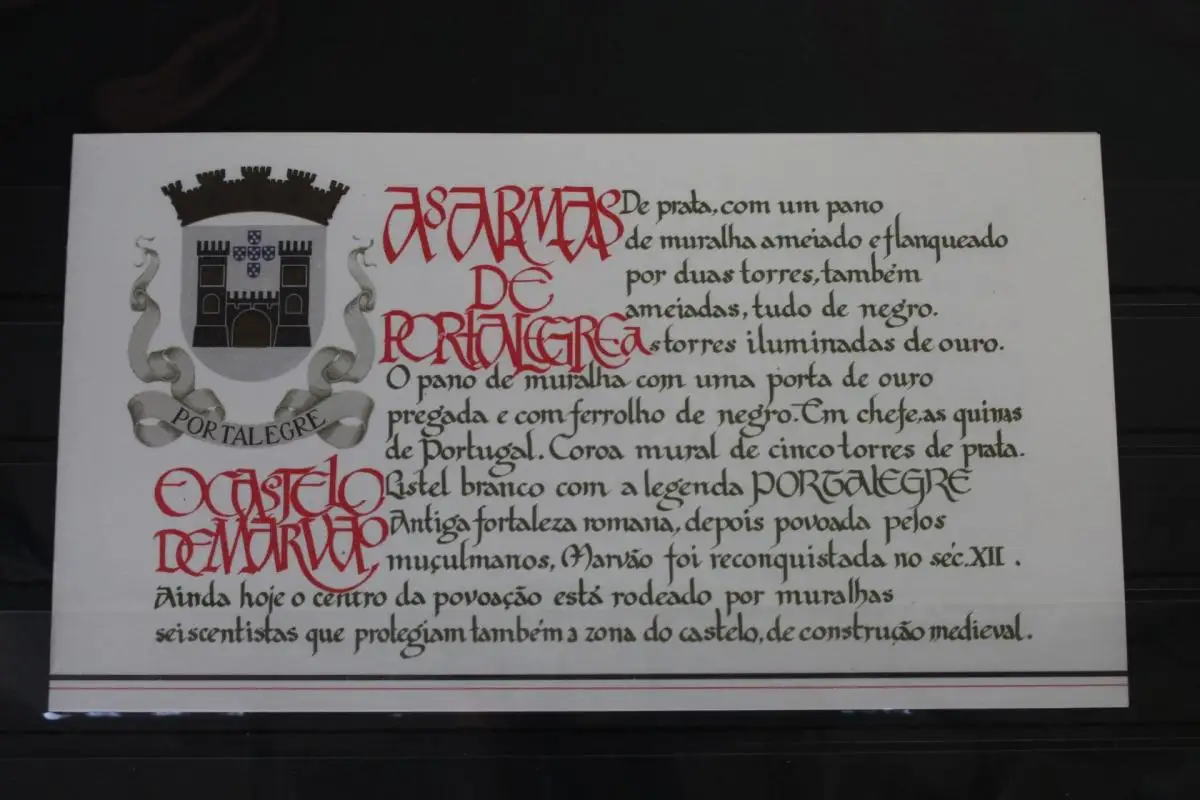 PORTALEGRE
AS ARMAS
DE
PORTALEGRE
De prata, com um pano
de muralha ameiado e flanqueado
por duas torres, também
ameiadas, tudo de negro.
as torres iluminadas de ouro.
O pano de muralha com uma porta de ouro
pregada e com ferrolho de negro. Em chefe, as quinas
de Portugal. Coroa mural de cinco torres de prata.
Listel branco com a legenda PORTALEGRE
O CASTELO
DE MARVÃO
Antiga fortaleza romana, depois povoada pelos
muçulmanos, Marvão foi reconquistada no séc. XII.
Ainda hoje o centro da povoação está rodeado por muralhas
seiscentistas que protegiam também a zona do castelo, de construção medieval.